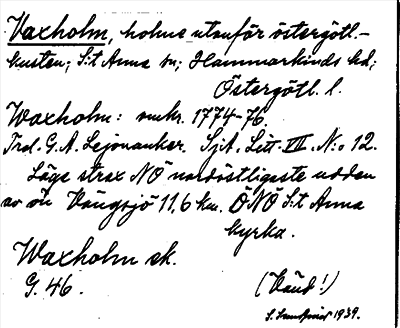 Vaxholm, holme utanför östergötl.-
kusten; S:t Anna sn; Hammarkinds hd;
Östergötl. l.
Waxholm: omkr. 1774-76.
Trol. G. A. Lejonanker. Sjöt. Litt. VII. N:o 12.
Läge strax NÖ nordöstligaste udden
av ön Vängsjö 11,6 km. ÖNÖ S:t Anna
kyrka.
Waxholm sk.
G. 46.
(Vänd!)
1939.